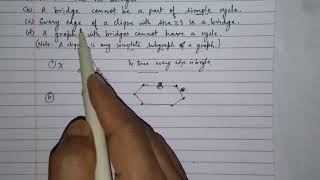 (b) A bridge cannot be a part of simple cycle.
(c) Every edge of a clique with size ≥ 3 is a bridge.
(d) A graph with bridges cannot have a cycle.
(Note: A clique is any complete subgraph of a graph)
(a) X In tree every edge is bridge.
(b)